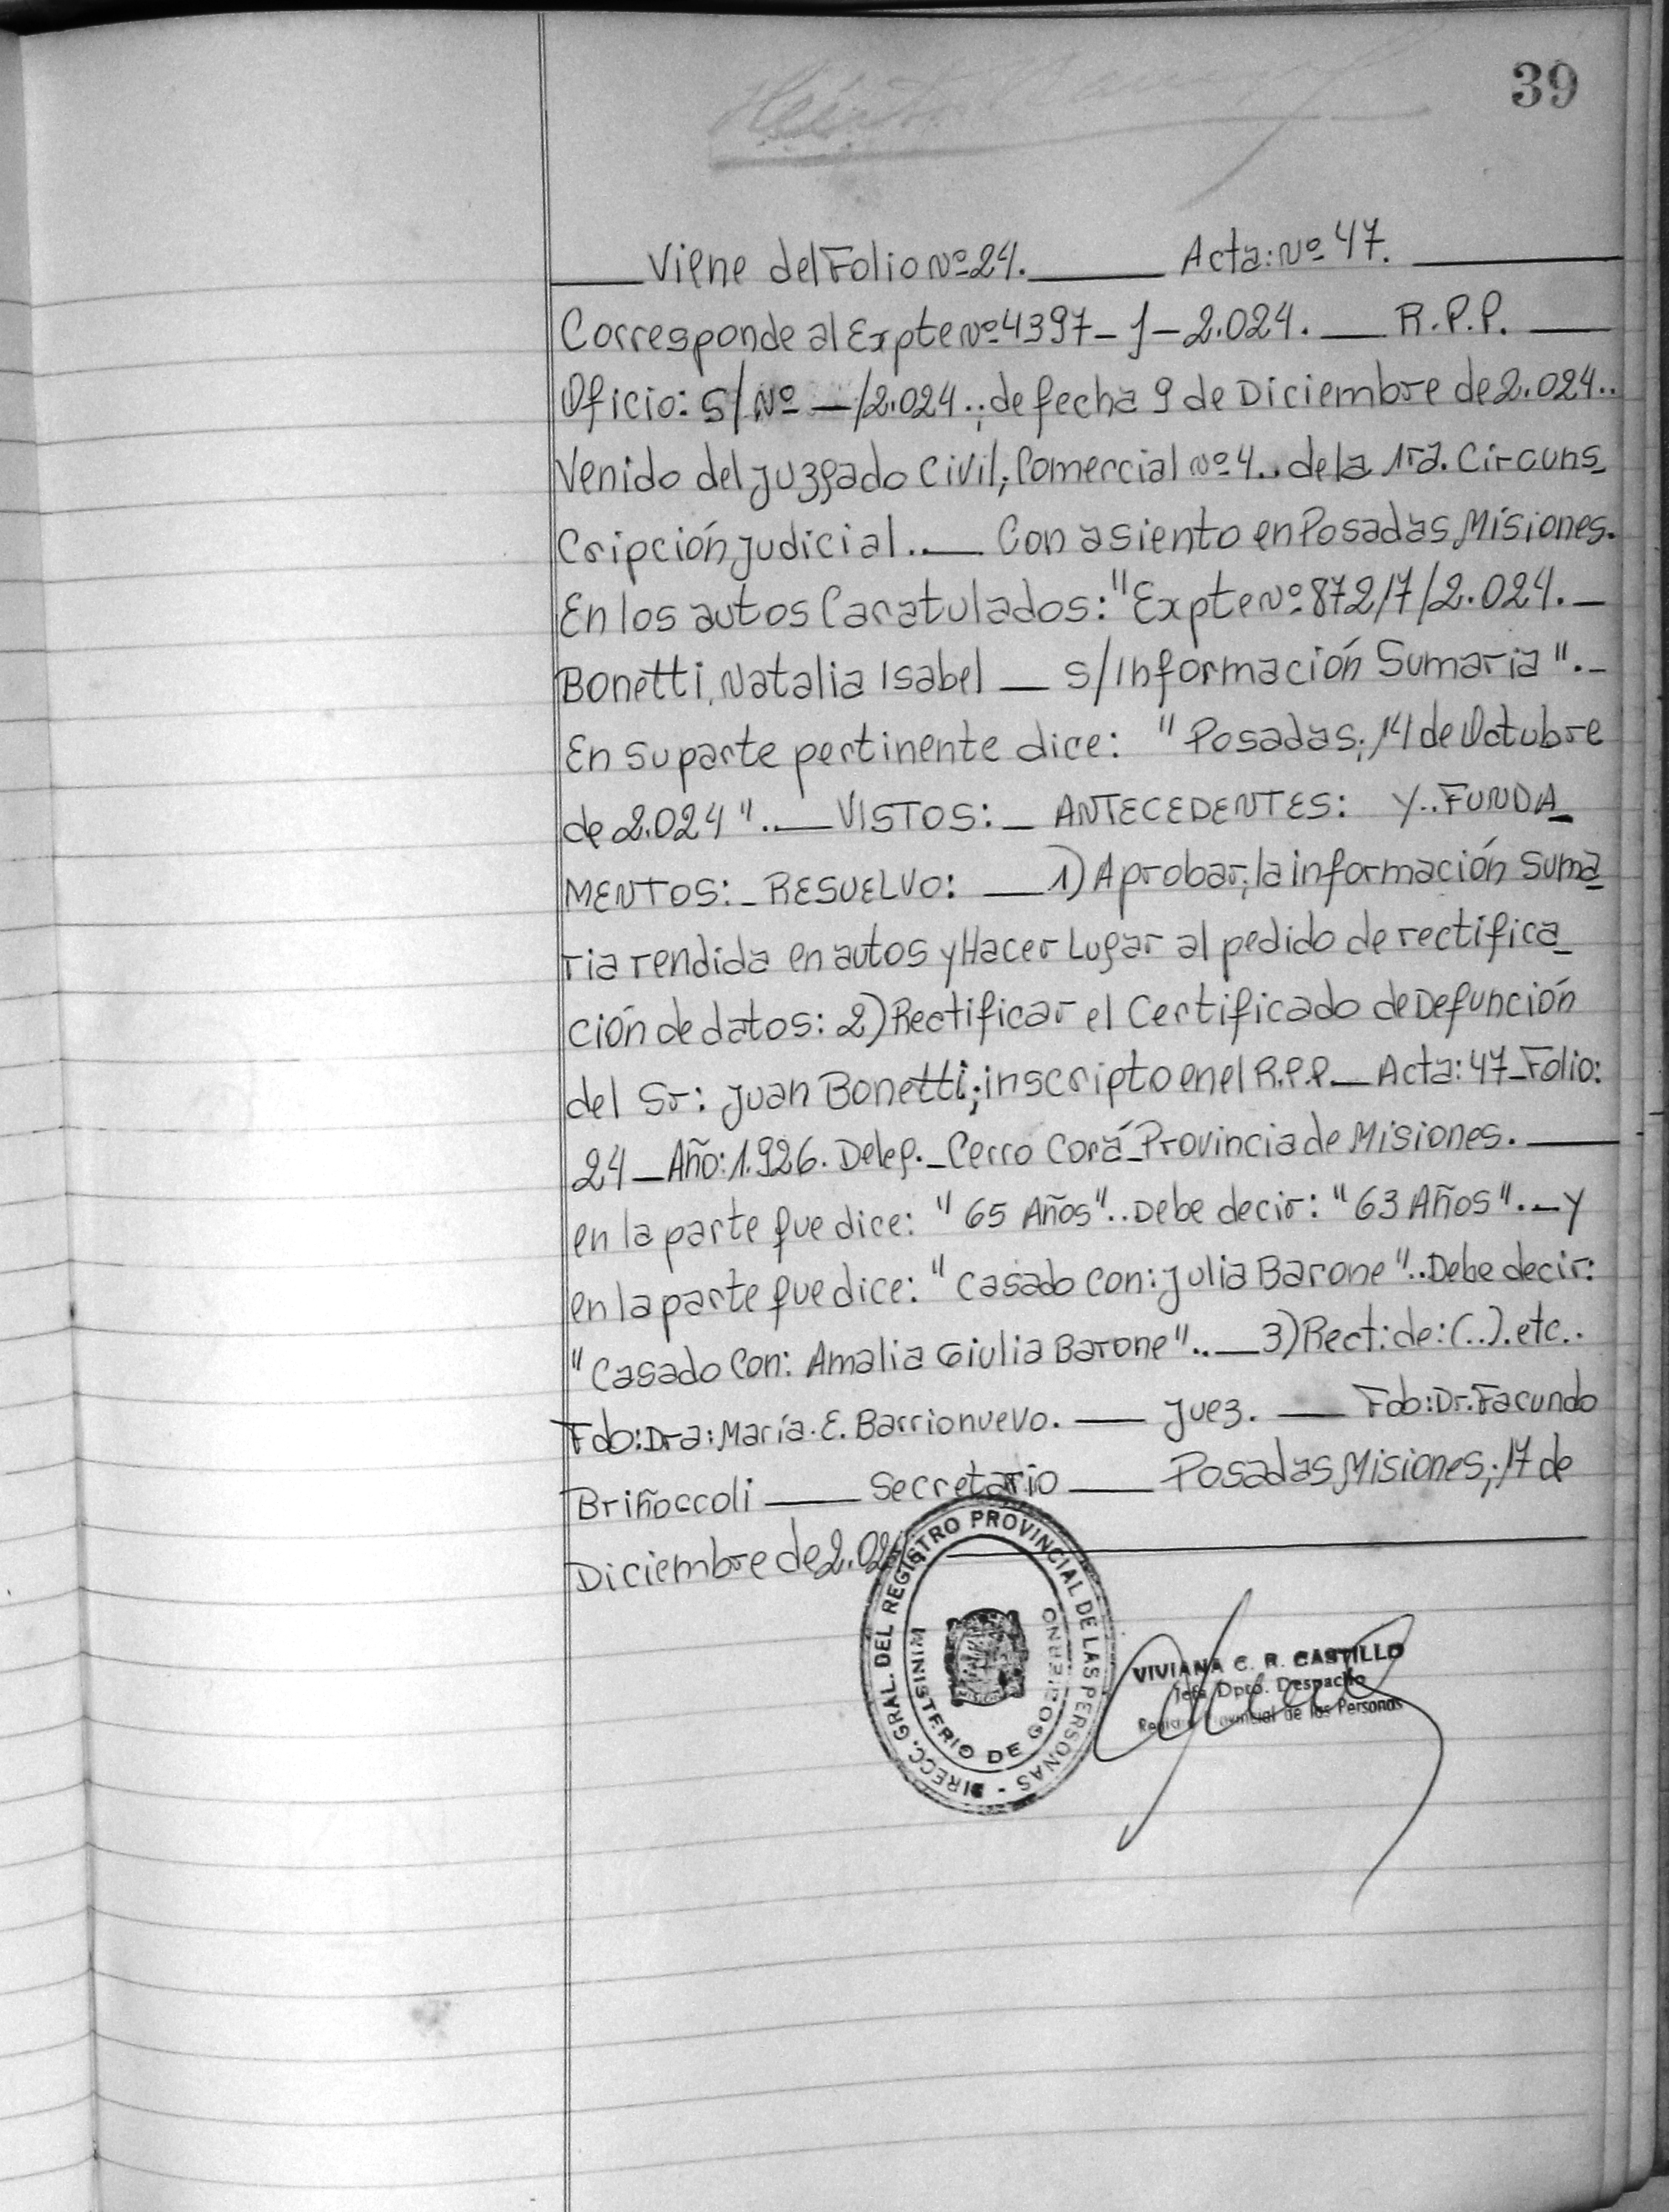 39
Viene del Folio Nº 24. Acta: Nº 47.
Corresponde al Expte Nº 4397 - J - 2.024. R.P.P.
Oficio: S/Nº —/2.024.; de fecha 9 de Diciembre de 2.024..
Venido del Juzgado Civil; Comercial Nº 4.. de la 1ra. Circuns_
Cripción Judicial.. Con asiento en Posadas, Misiones.
En los autos Caratulados: "Expte Nº 87217/2.024. _
Bonetti, Natalia Isabel _ S/Información Sumaria". _
En su parte pertinente dice: "Posadas; 14 de Octubre
de 2.024".. VISTOS: _ ANTECEDENTES: Y.. FUNDA_
MENTOS: _ RESUELVO: _ 1) Aprobar; la información Suma_
ria rendida en autos y Hacer Lugar al pedido de rectifica_
ción de datos: 2) Rectificar el Certificado de Defunción
del Sr: Juan Bonetti; inscripto en el R.P.P. _ Acta: 47 _ Folio:
24 _ Año: 1.926. Deleg. _ Cerro Corá _ Provincia de Misiones.
en la parte que dice: "65 Años".. Debe decir: "63 Años". _ Y
en la parte que dice: "Casado Con: Julia Barone".. Debe decir:
"Casado Con: Amalia Giulia Barone".. _ 3) Rect: de: (..). etc..
Fdo: Dra: María. E. Barrionuevo. _ Juez. _ Fdo: Dr. Facundo
Briñoccoli _ Secretario _ Posadas, Misiones; 17 de
Diciembre de
DIRECC. GRAL. DEL REGISTRO PROVINCIAL DE LAS PERSONAS -
MINISTERIO DE GOBIERNO
VIVIANA C. R. CASTILLO
Jefa Dpto. Despacho
Registro Provincial de las Personas